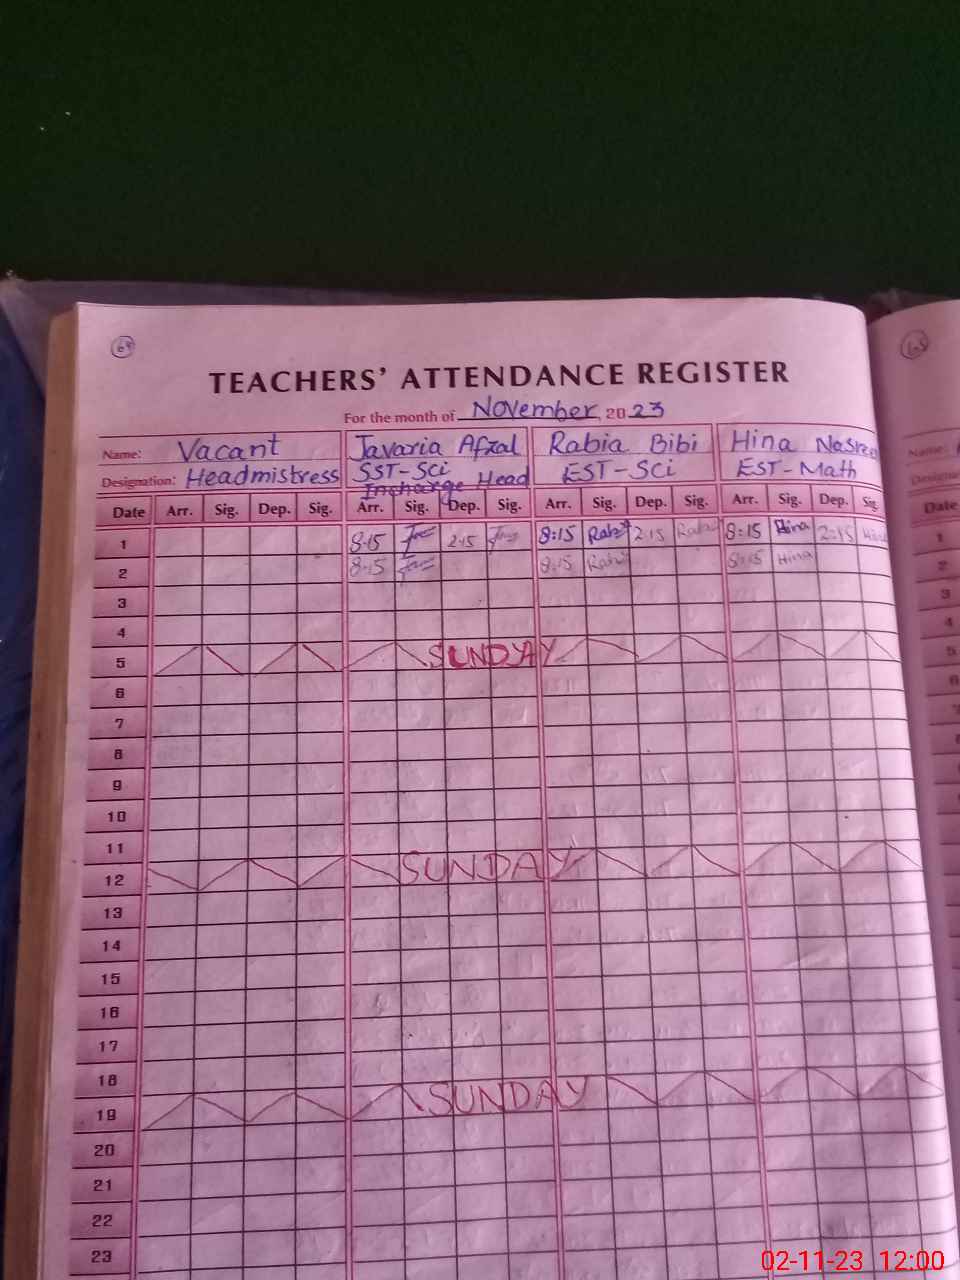 64
TEACHERS' ATTENDANCE REGISTER
For the month of November 2023
Name: Vacant Javaria Afzal Rabia Bibi Hina Nasreen
Designation: Headmistress SST-Sci Incharge Head EST-Sci EST-Math
Date Arr. Sig. Dep. Sig. Arr. Sig. Dep. Sig. Arr. Sig. Dep. Sig. Arr. Sig. Dep. Sig.
1 8:15 2:15 8:15 Rabia 2:15 Rabia 8:15 Hina 2:15 Hina
2 8:15 8:15 Rabia 8:15 Hina
3
4
5 SUNDAY
6
7
8
9
10
11
12 SUNDAY
13
14
15
16
17
18
19 SUNDAY
20
21
22
23
65
Name:
Date
1
2
3
4
5
6
02-11-23 12:00